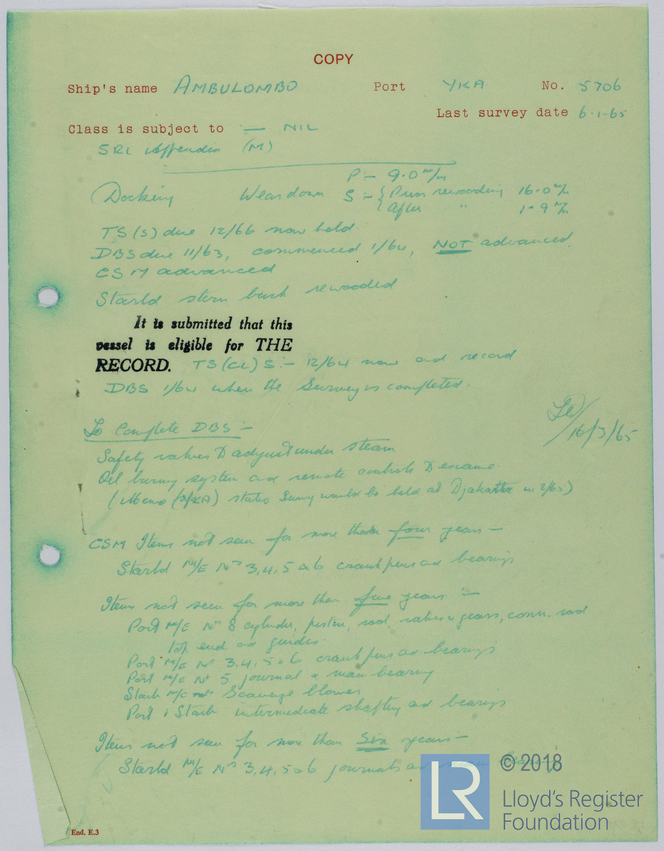 COPY
Ship's name AMBULOMBO Port YKA No. 5706
Last survey date 6.1.65
Class is subject to — NIL
SRL Appendix (M)
P :- 9.0 m/m
Docking Weardown S :- { Prior rewooding 16.0 m/m
After " 1.9 m/m
TS (S) due 12/66 now held
DBS due 11/63, commenced 1/64, NOT advanced
CSM advanced
Starbd stern bush rewooded
It is submitted that this
vessel is eligible for THE
RECORD. TS (CL) S :- 12/64 now and record
DBS 1/64 when the Survey is completed.
16/3/65
To Complete DBS :-
Safety valves to adjust under steam
Oil burning system and remote controls to examine
(Memo (YKA) states Survey would be held at Djakarta in 2/65)
CSM Items not seen for more than four years —
Starbd M/E Nos 3,4,5 & 6 crankpins and bearings
Items not seen for more than five years :-
Port M/E No 8 cylinder, piston, rod, valves & gears, conn. rod
top end and guides
Port M/E Nos 3,4,5 & 6 crankpins and bearings
Port M/E No 5 journal & main bearing
Starb M/E Scavenge blower
Port & Starb intermediate shafting and bearings
Items not seen for more than Six years —
Starbd M/E Nos 3,4,5 & 6 journals and
End. E.3
LR © 2018
Lloyd's Register
Foundation